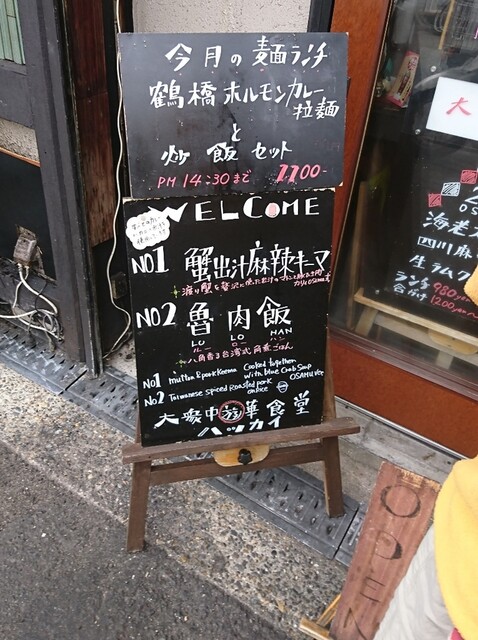 今月の麺ランチ
鶴橋ホルモンカレー
拉麺
と
炒飯セット
PM 14:30まで 1100-
WELCOME
NO1 蟹出汁麻辣キーマ
NO2 魯肉飯
LU LO HAN
ルー ロー ハン
八角香る台湾式角煮ごはん
No1 mutton & pork Keema Cooked together
with blue Crab Soup
OSAMU Ver
No2 Taiwanese spiced Roasted pork
on Rice
大衆中遊華食堂
ハッカイ
大
海老
四川麻
生ラムク
ランチ 980yen
合がけ 1200yen~
OPEN